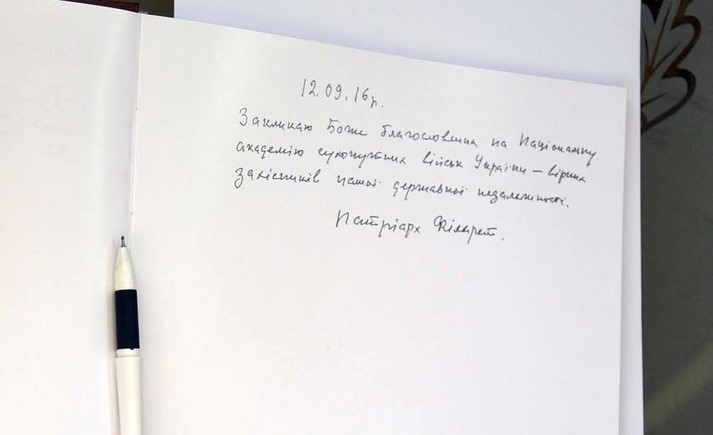 12.09.16р.
Закликаю Боже благословення на Національну
академію сухопутних військ України – вірних
захисників нашої державної незалежності.
Патріарх Філарет.